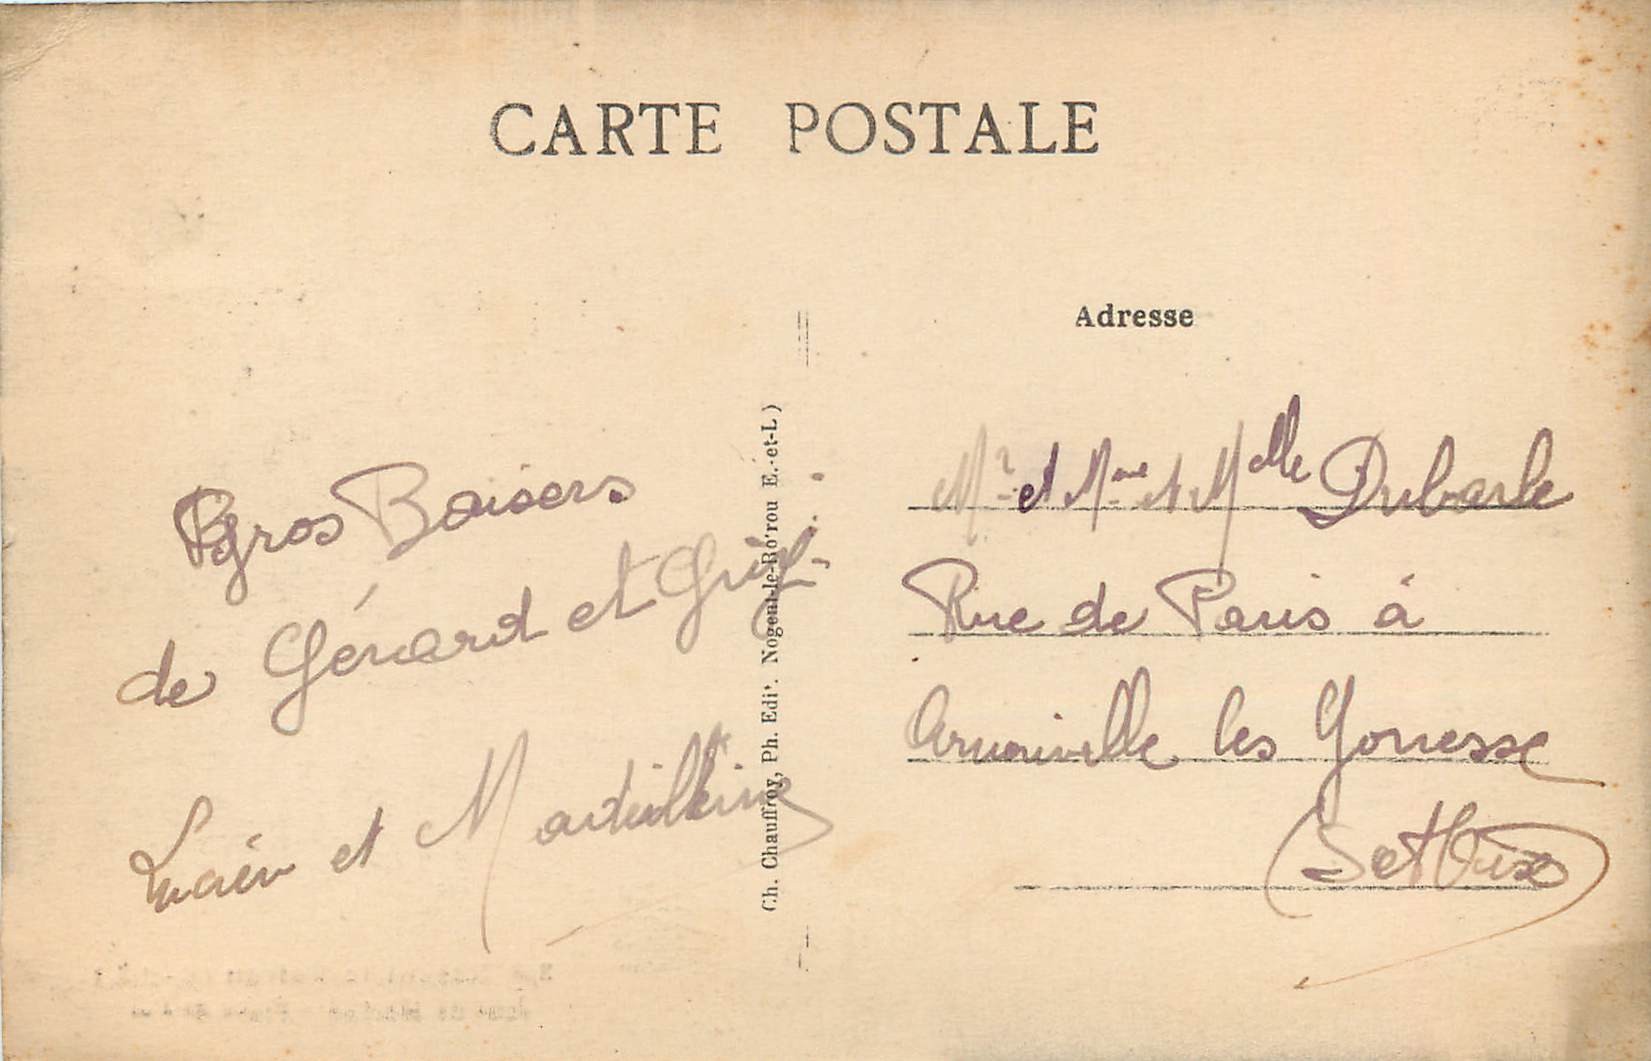 CARTE POSTALE
Adresse
gros Baisers
de Gérard et Guy
Lucien et
Ch. Chauffroy, Ph. Edit. Nogent-le-Ro'rou E.-et-L)
Mr et Mme et Melle Dubarle
Rue de Paris à
Arnouville les Gonesse
(Set Oise)